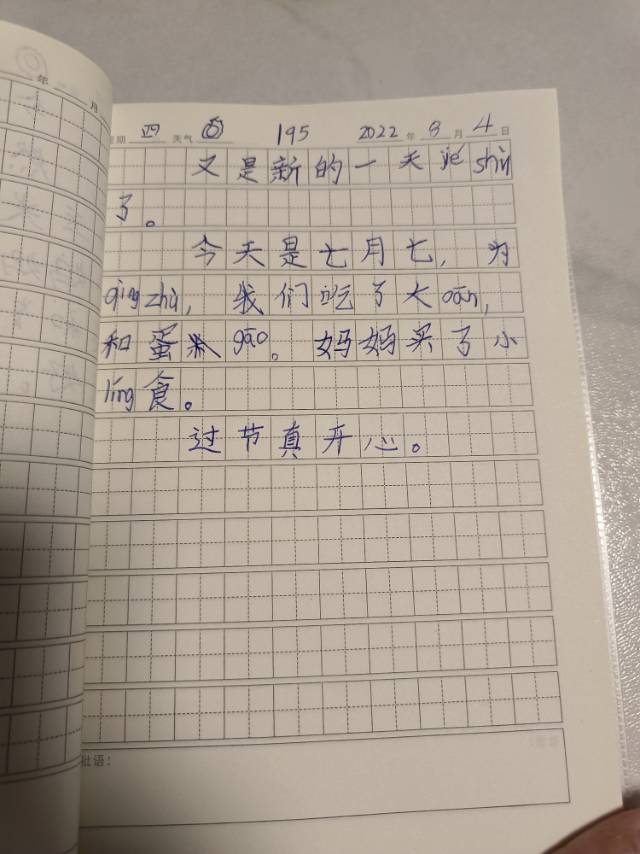 年 月
星期 四 天气 195 2022 年 8 月 4 日
又是新的一天jié shù
了。
今天是七月七，为
qìng zhù，我们吃了大cān，
和蛋gāo。妈妈买了小
líng食。
过节真开心。
批语：